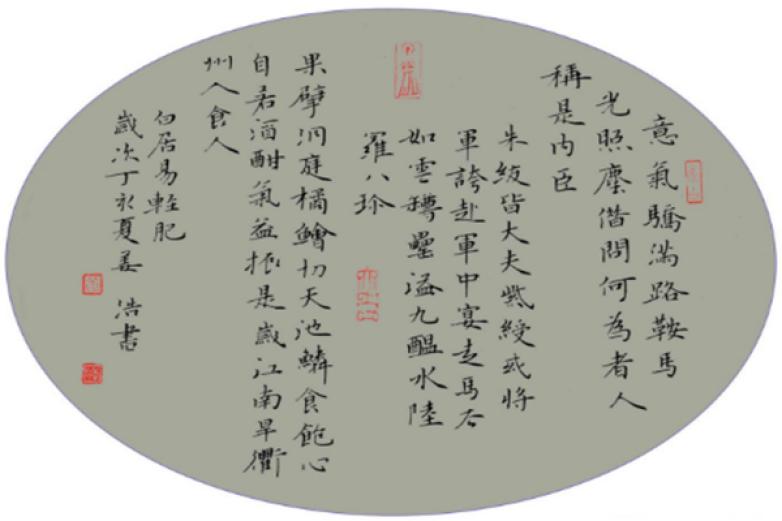 意氣驕滿路鞍馬
光照塵借問何為者人
稱是内臣
朱紱皆大夫紫綬或將
軍誇赴軍中宴走馬去
如雲罇罍溢九醞水陸
羅八珍
果擘洞庭橘鱠切天池鱗食飽心
自若酒酣氣益振是歲江南旱衢
州人食人
白居易輕肥
歲次丁夏姜浩書